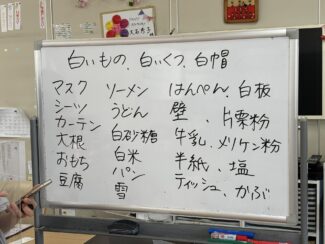 白いもの、白いくつ、白帽
マスク　ソーメン　はんぺん、白板
シーツ　うどん　壁、片栗粉
カーテン　白砂糖　牛乳、メリケン粉
大根　白米　半紙、塩
おもち　パン　ティッシュ、かぶ
豆腐　雪